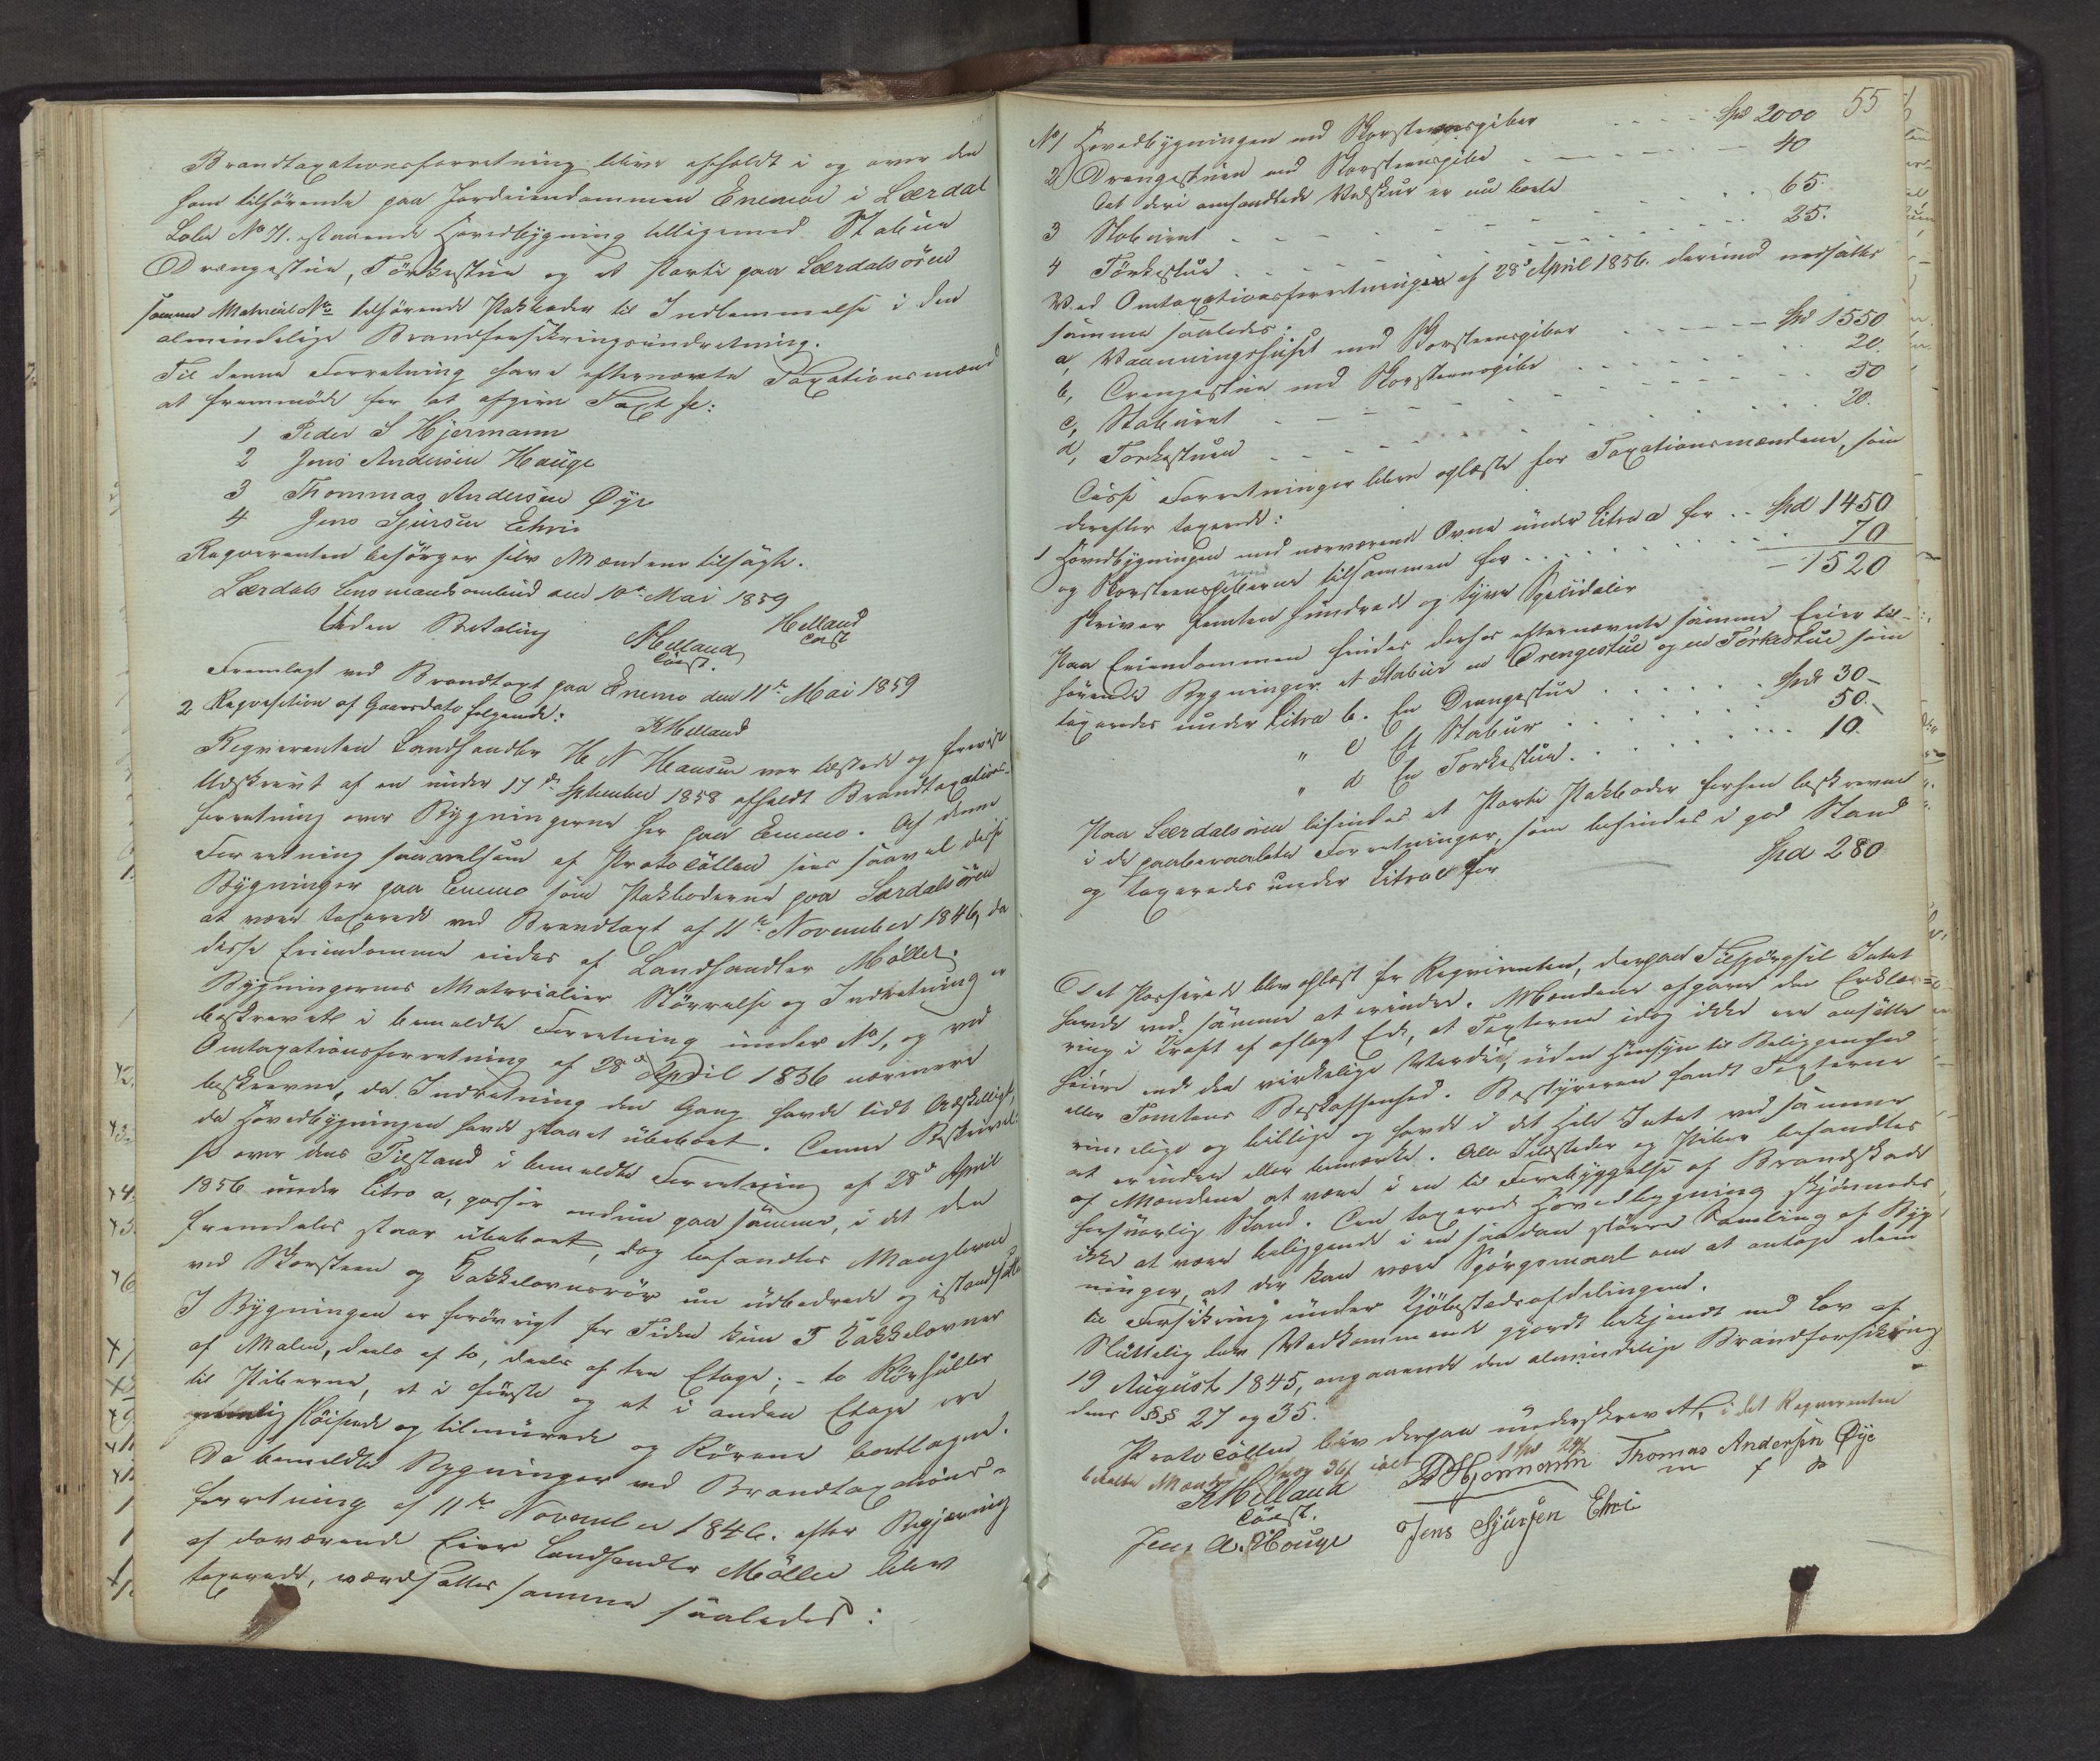 Brandtaxationsforretning blive afholdt i og over den
ham tilhørende paa Jordeiendommen Enemoe i Lærdal
Løbe No 71. staaende Hovedbygning tilligemed Stabur
Drengestue, Törkestue og et Parti paa Lærdalsören
samme Matricul No tilhørende Pakboder til Indlemmelse i den
almindelige Brandforsikringsindretning.
Til denne Forretning have efternævnte Taxationsmænd
at fremmöde for at afgive Taxt sc:
1 Peder S Hjermann
2 Jens Andersen Hauge
3 Thommas Andersen Øye
4 Jens Sjursen Ehri
Reqverenten besörger selv Mændene tilsagte.
Lærdals Lensmandsombud den 10de Mai 1859
Helland
Uden Betaling
Const
KHelland
Const.
Fremlagt ved Brandtaxt paa Enemo den 11te Mai 1859
KHelland
2 Reqvisition af Gaarsdato følgende:
Reqverenten Landhandler H N Hansen var tilstede og foreviste
Udskrivt af en under 17de September 1858 afholdt Brandtaxations-
forretning over Bygningerne her paa Enemo. Af denne
Forretning saavelsom af Protocollen sees saavel disse
Bygninger paa Enemo som Pakboderne paa Lærdalsören
at være taxerede ved Brandtaxt af 11te November 1846, da
disse Eiendomme eiedes af Landhandler Möller.
Bygningernes Materialier Störrelse og Indretning er
beskrevet i bemeldte Forretning under No 1, og ved
Omtaxationsforretning af 28de April 1856 nærmere
beskrevne, da Indretning den Gang havde lidt Adskilligt,
da Hovedbygningen havde staaet ubeboet. Denne Beskrivel-
se over dens Tilstand i bemeldte Forretning af 28de April
1856 under Litra a, passer endnu paa samme, i det den
fremdeles staar ubeboet, dog befandtes Manglerne
ved Skorsteen og Kakkelovnsrör nu udbedrede og istandsatte
I Bygningen er forövrigt for Tiden kun 5 Kakkelovner
af Malm, deels af to, deels af tre Etage; - to Rörhuller
til Piberne, et i förste og et i anden Etage ere
slöifede og tilmurede og Rörene borttagne.
Da bemeldte Bygninger ved Brandtaxations-
forretning af 11te November 1846. efter Begjæring
af daværende Eier Landhandler Möller blev
taxerede, værdsattes samme saaledes:
55
No 1 Hovedbygningen med Skorsteenspiber Spd 2000
2) Drengestuen med Skorsteenspibe 40
Det deri omhandlede Vedskur er nu borte
3 Staburet 65.
4 Törkestue 25.
Ved Omtaxationsforretningen af 28de April 1856. derimod nedsattes
samme saaledes:
a, Vaaningshuset med Skorsteenspiber Spd 1550
b, Drengestue med Skorsteenspibe 20
c, Staburet 50
d, Törkestuen 20.
Disse Forretninger bleve oplæste for Taxationsmændene, som
derefter taxerede:
1 Hovedbygningen med nærværende Ovne under Litra a for Spd 1450
og Skorsteenspiberne tilsammen for 70
1520
skriver Femten Hundrede og tyve Speciedaler
Paa Eiendommen findes derhos efternævnte samme Eier til-
hørende Bygninger et Stabur en Drengestue og en Törkestue som
taxeredes under Litra b. En Drengestue Spd 30 -
" c Et Stabur 50. -
" d En Torkestue. 10.
Paa Lærdalsören befindes et Parti Pakboder forhen beskrevne
i de paaberaabte Forretninger, som befindes i god Stand
og taxeredes under Litra e for Spd 280
Det Passerede blev oplæst for Reqvirenten, der paa Tilspörgsel Intet
havde ved samme at erindre. Mændene afgave den Erklæ-
ring i Kraft af aflagt Eed, at Taxterne idag ikke ere ansatte
høiere end den virkelige Værdie, uden Hensyn til Beliggenhed
eller Tomtens Beskaffenhed. Bestyreren fandt Taxterne
rimelige og billige og havde i det Hele Intet ved samme
at erindre eller bemærke. Alle Ildsteder og Piber befandtes
af Mændene at være i en til Forebyggelse af Brandskade
forsvarlig Stand. Den taxerede Hovedbygning skjönnedes
ikke at være beliggende i en saadan större Samling af Byg-
ninger, at der kan være Spörgsmaal om at antage dem
til Forsikring under Kjöbstadsafdelingen.
Sluttelig blev Vedkommende gjordt bekjendt med Lov af
19 August 1845, angaaende den almindelige Brandforsikring
dens §§ 27 og 35.
Protocollen blev derpaa underskrevet, i det Reqverenten
betalte Mændene hver 36 ialt 1 Spd 24
KHelland PSHjermann Thomas Andersen Øye
Const. m f P
Jens A. Houge Jens Sjursen Ehri